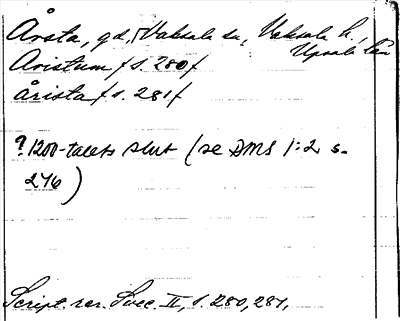 Årsta, gd, Vaksala sn, Vaksala h,
Upsala län
Aristum f s. 280 f
årista f s. 281 f
? 1200-talets slut (se DMS 1:2 s.
276)
Script. rer. Svec. II, s. 280, 281,